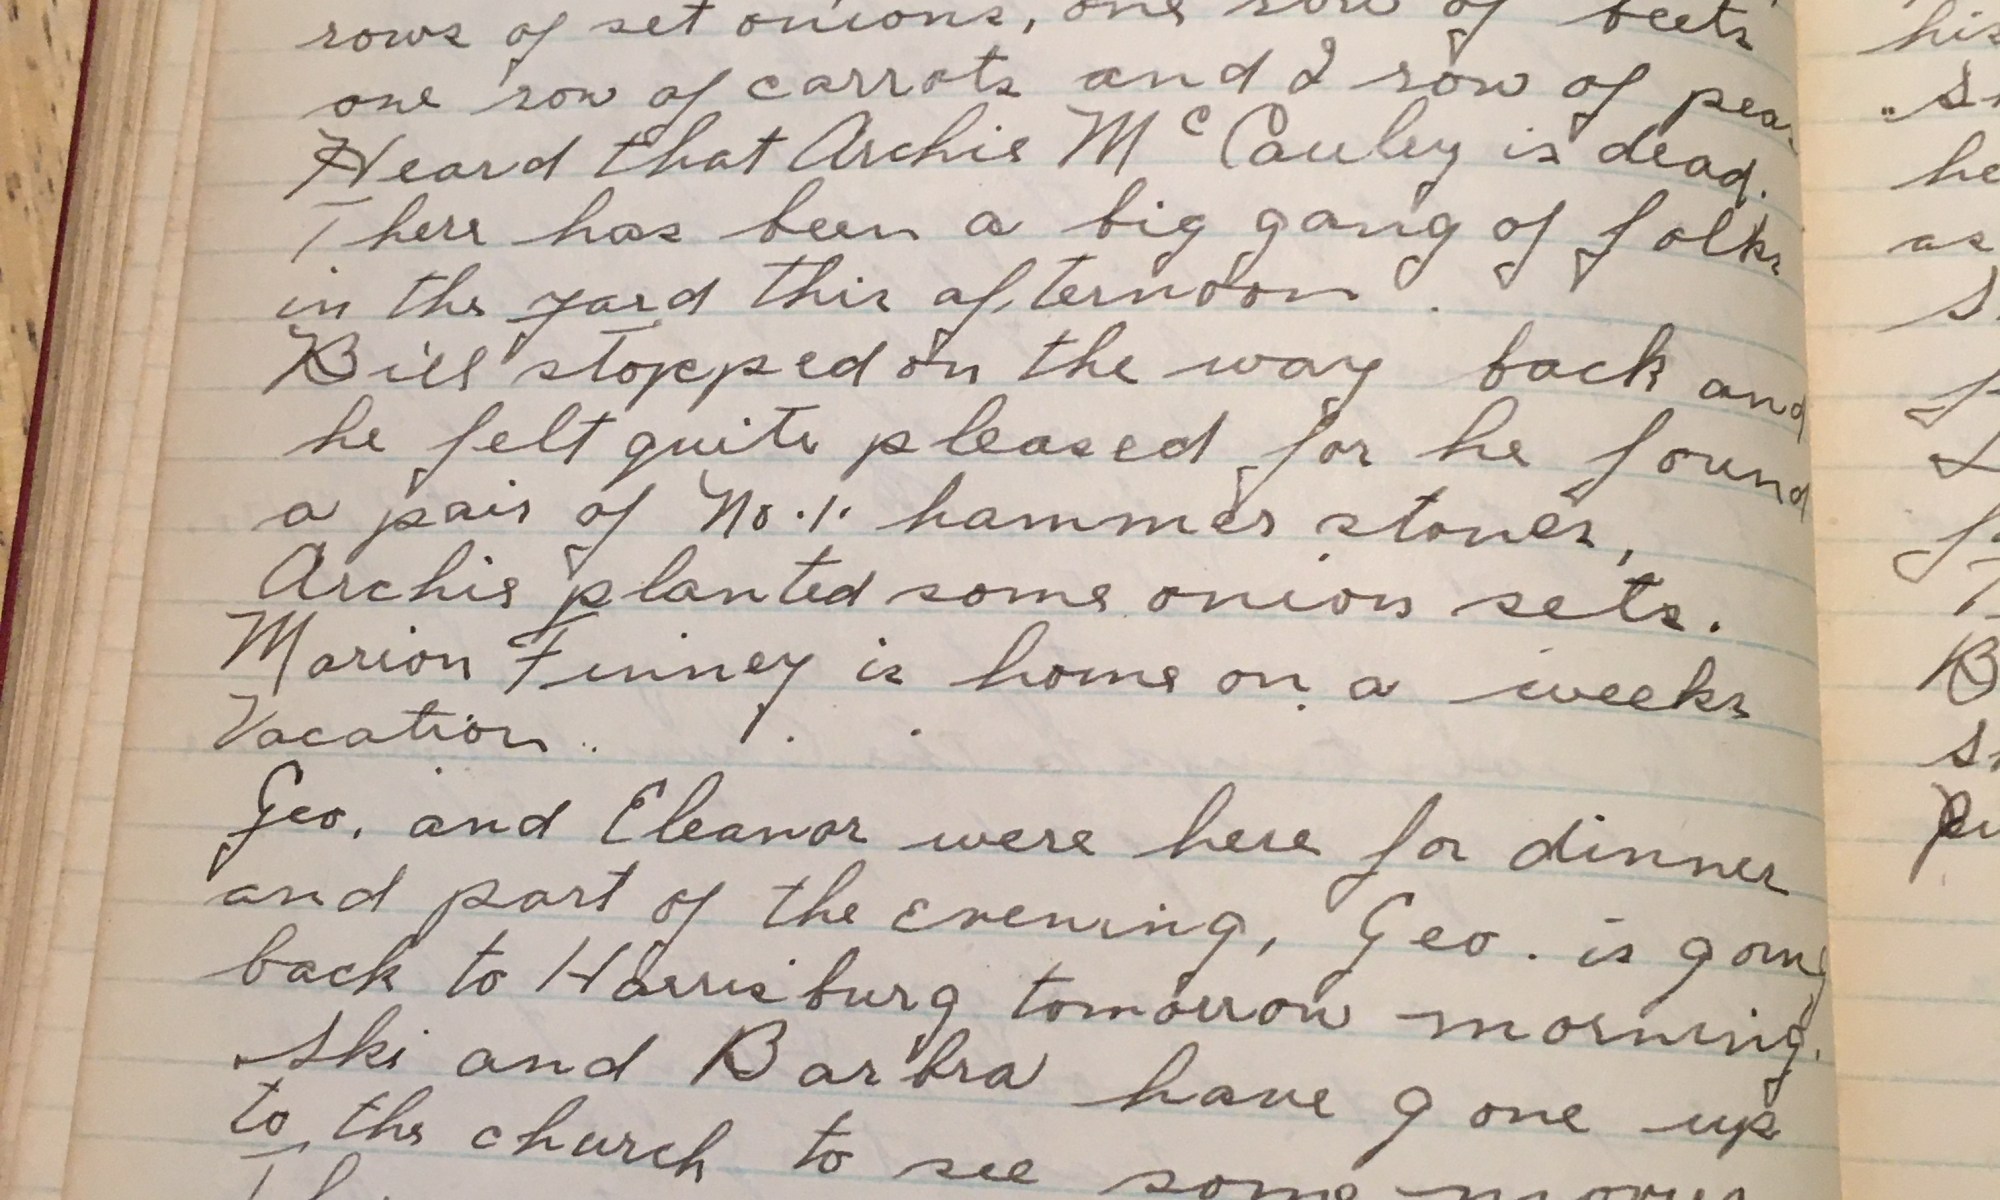 rows of set onions, one row of beets
one row of carrots and 2 row of peas
Heard that Archie McCauley is dead.
There has been a big gang of folks
in the yard this afternoon.
Bill stopped on the way back and
he felt quite pleased for he found
a pair of No. 1. hammer stones,
Archie planted some onion sets.
Marion Finney is home on a weeks
Vacation..
Geo. and Eleanor were here for dinner
and part of the evening, Geo. is going
back to Harrisburg tomorrow morning.
Ski and Barbra have gone up
to the church to see some movies
his
he
as